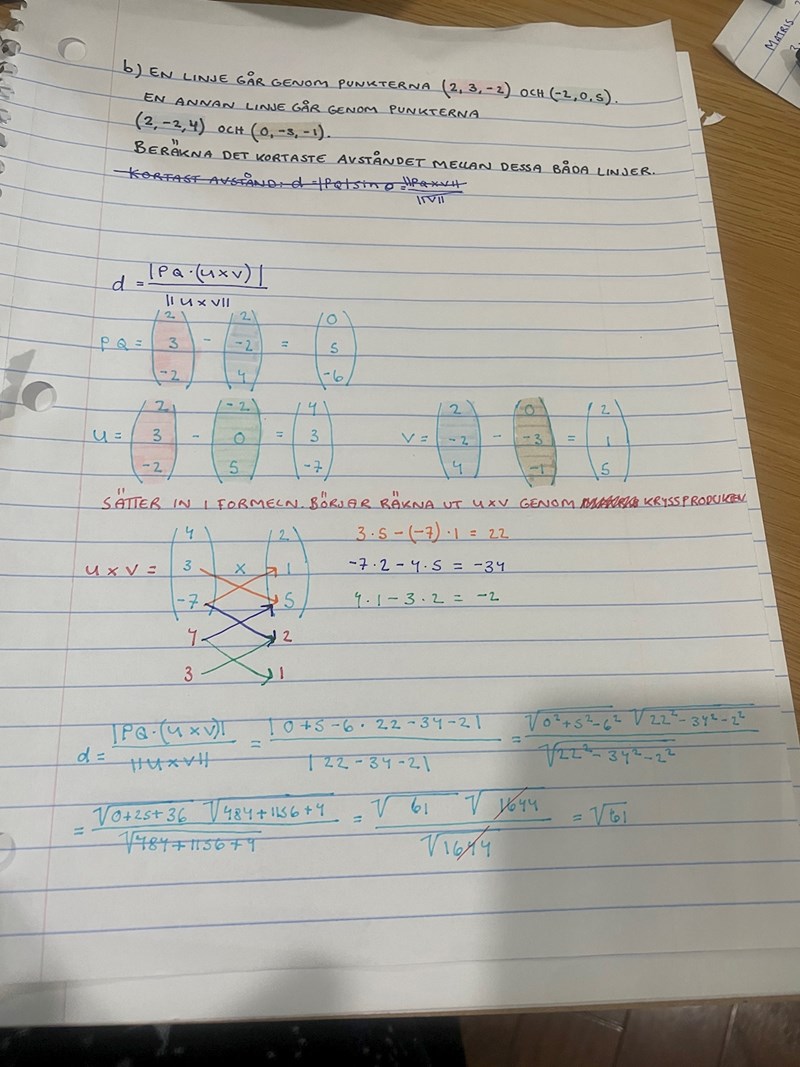 MATRIS
b) EN LINJE GÅR GENOM PUNKTERNA (2, 3, -2) OCH (-2, 0, 5).
EN ANNAN LINJE GÅR GENOM PUNKTERNA
(2, -2, 4) OCH (0, -3, -1).
BERÄKNA DET KORTASTE AVSTÅNDET MELLAN DESSA BÅDA LINJER.
KORTAST AVSTÅND: d = |PQ| sin θ = ||PQ×V|| / ||V||
d = |PQ·(U×V)| / ||U×V||
PQ = (2 3 -2) - (2 -2 4) = (0 5 -6)
U = (2 3 -2) - (-2 0 5) = (4 3 -7) V = (2 -2 4) - (0 -3 -1) = (2 1 5)
SÄTTER IN I FORMELN. BÖRJAR RÄKNA UT U×V GENOM KRYSSPRODUKEN
4 2 3·5-(-7)·1 = 22
U×V = 3 × 1 -7·2-4·5 = -34
-7 5 4·1-3·2 = -2
4 2
3 1
d = |PQ·(U×V)| / ||U×V|| = |0+5-6·22-34-2| / |22-34-2| = √0²+5²-6² √22²-34²-2² / √22²-34²-2²
= √0+25+36 √484+1156+4 / √484+1156+4 = √61 √1644 / √1644 = √61